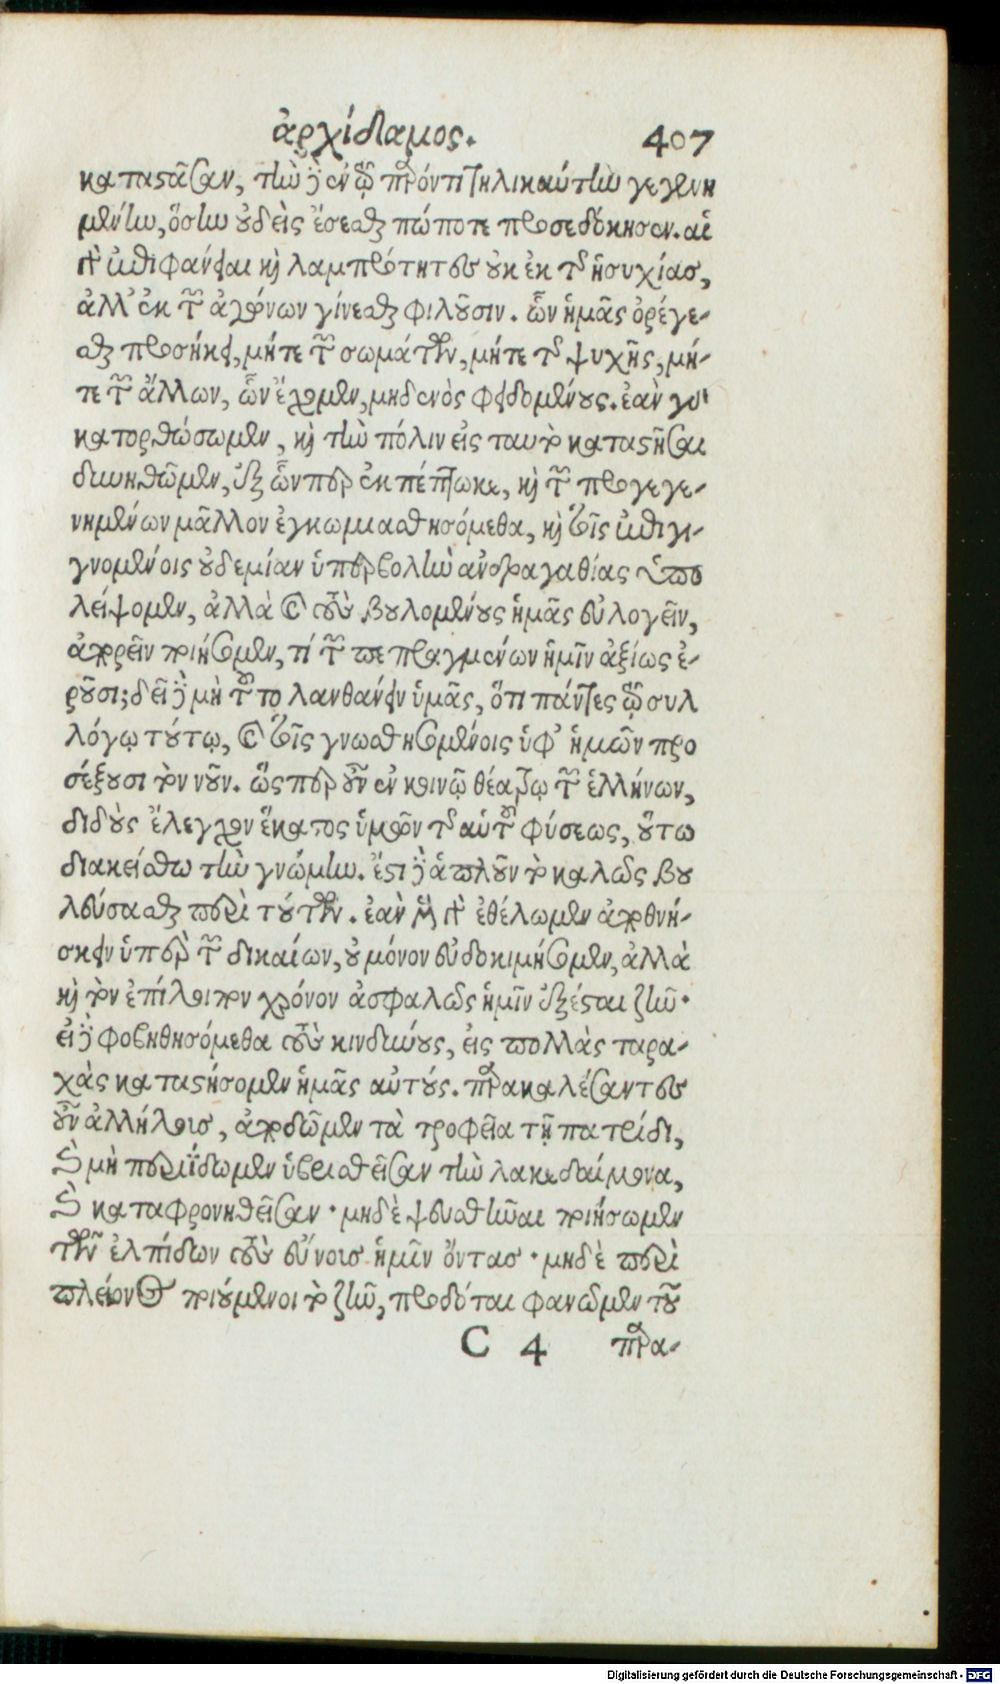 ἀρχίδαμος. 407
καταστᾶσαν, τὴν δὲ ἐν τῷ παρόντι τηλικαύτην γεγενη
μένην, ὅσην οὐδεὶς ἔσεσθαι πώποτε προσεδόκησεν. αἱ
γὰρ ἐπιφάνειαι καὶ λαμπρότητες οὐκ ἐκ τῆς ἡσυχίας,
ἀλλ' ἐκ τῶν ἀγώνων γίνεσθαι φιλοῦσιν. ὧν ἡμᾶς ὀρέγε-
σθαι προσήκει, μήτε τῶν σωμάτων, μήτε τῆς ψυχῆς, μή-
τε τῶν ἄλλων, ὧν ἔχομεν, μηδενὸς φειδομένους. ἐὰν γὰρ
κατορθώσωμεν, καὶ τὴν πόλιν εἰς ταυτὸ καταστῆσαι
δυνηθῶμεν, ἐξ ὧνπερ ἐκπέπτωκε, καὶ τῶν προγεγε-
νημένων μᾶλλον ἐγκωμιασθησόμεθα, καὶ τοῖς ἐπιγι-
γνομένοις οὐδεμίαν ὑπερβολὴν ἀνδραγαθίας ὑπο
λείψομεν, ἀλλὰ καὶ τοὺς βουλομένους ἡμᾶς εὐλογεῖν,
ἀπορεῖν ποιήσομεν, τί τῶν πεπραγμένων ἡμῖν ἀξίως ἐ-
ροῦσι; δεῖ δὲ μὴ τοῦτο λανθάνειν ὑμᾶς, ὅτι πάντες τῷ συλ
λόγῳ τούτῳ, καὶ τοῖς γνωσθησομένοις ὑφ' ἡμῶν προ
σέξουσι τὸν νοῦν. ὥσπερ οὖν ἐν κοινῷ θεάτρῳ τῶν ἑλλήνων,
διδοὺς ἔλεγχον ἕκαστος ὑμῶν τῆς αὑτοῦ φύσεως, οὕτω
διακείσθω τὴν γνώμην. ἔστι δὲ ἁπλοῦν τὸ καλῶς βου
λεύσασθαι περὶ τούτων. ἐὰν μὲν γὰρ ἐθέλωμεν ἀποθνή-
σκειν ὑπὲρ τῶν δικαίων, οὐ μόνον εὐδοκιμήσομεν, ἀλλὰ
καὶ τὸν ἐπίλοιπον χρόνον ἀσφαλῶς ἡμῖν ἐξέσται ζῆν·
εἰ δὲ φοβηθησόμεθα τοὺς κινδύνους, εἰς πολλὰς ταρα-
χὰς καταστήσομεν ἡμᾶς αὐτούς. παρακαλέσαντες
οὖν ἀλλήλοις, ἀποδῶμεν τὰ τροφεῖα τῇ πατρίδι,
καὶ μὴ περιίδωμεν ὑβρισθεῖσαν τὴν λακεδαίμονα,
καὶ καταφρονηθεῖσαν· μηδὲ ψευσθῆναι ποιήσωμεν
τῶν ἐλπίδων τοὺς εὔνοις ἡμῖν ὄντας· μηδὲ περὶ
πλείονος ποιούμενοι τὸ ζῆν, προδόται φανῶμεν τοῦ
C 4 παρα-
Digitalisierung gefördert durch die Deutsche Forschungsgemeinschaft - DFG